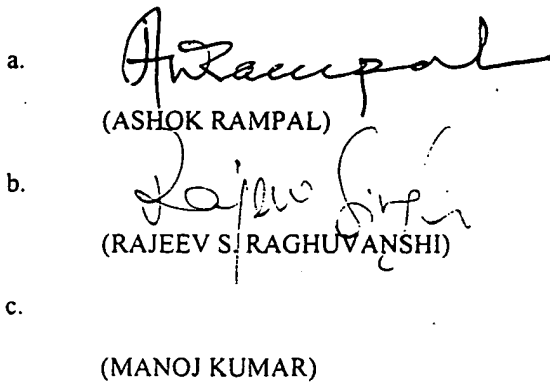 a. AnRampal
(ASHOK RAMPAL)
b. Rajeev Singh
(RAJEEV S. RAGHUVANSHI)
c.
(MANOJ KUMAR)